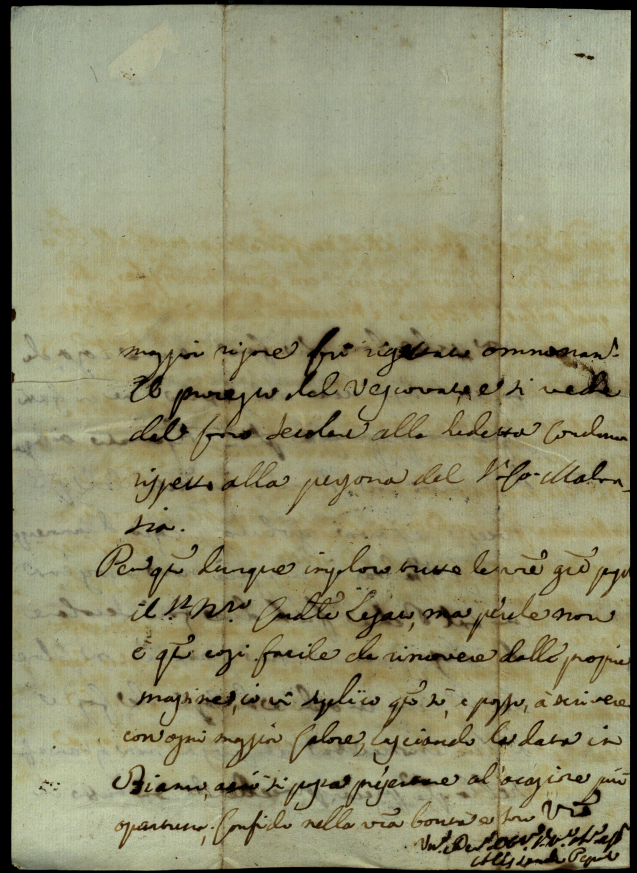 maggior rigore fu rigettata omninam.
Il processo del Vescovato, e si vede
dal foro secolare alla sudetta Condanna
rispetto alla persona del S. Co. Malva-
sia.
Per q.to dunque imploro tutte le v.re gra.e presso
il S.r Card.le Legato, ma perche non
è q.to cosi facile da rimovere dalle proprie
massime, io vi supplico q.to sò, e posso, à scrivere
con ogni maggior calore, lasciando la data in
Bianco, acciò si possa presentare al'occasione più
opportuna; Confido nella v.ra bontà e son V.ro
Alessandro Pepoli